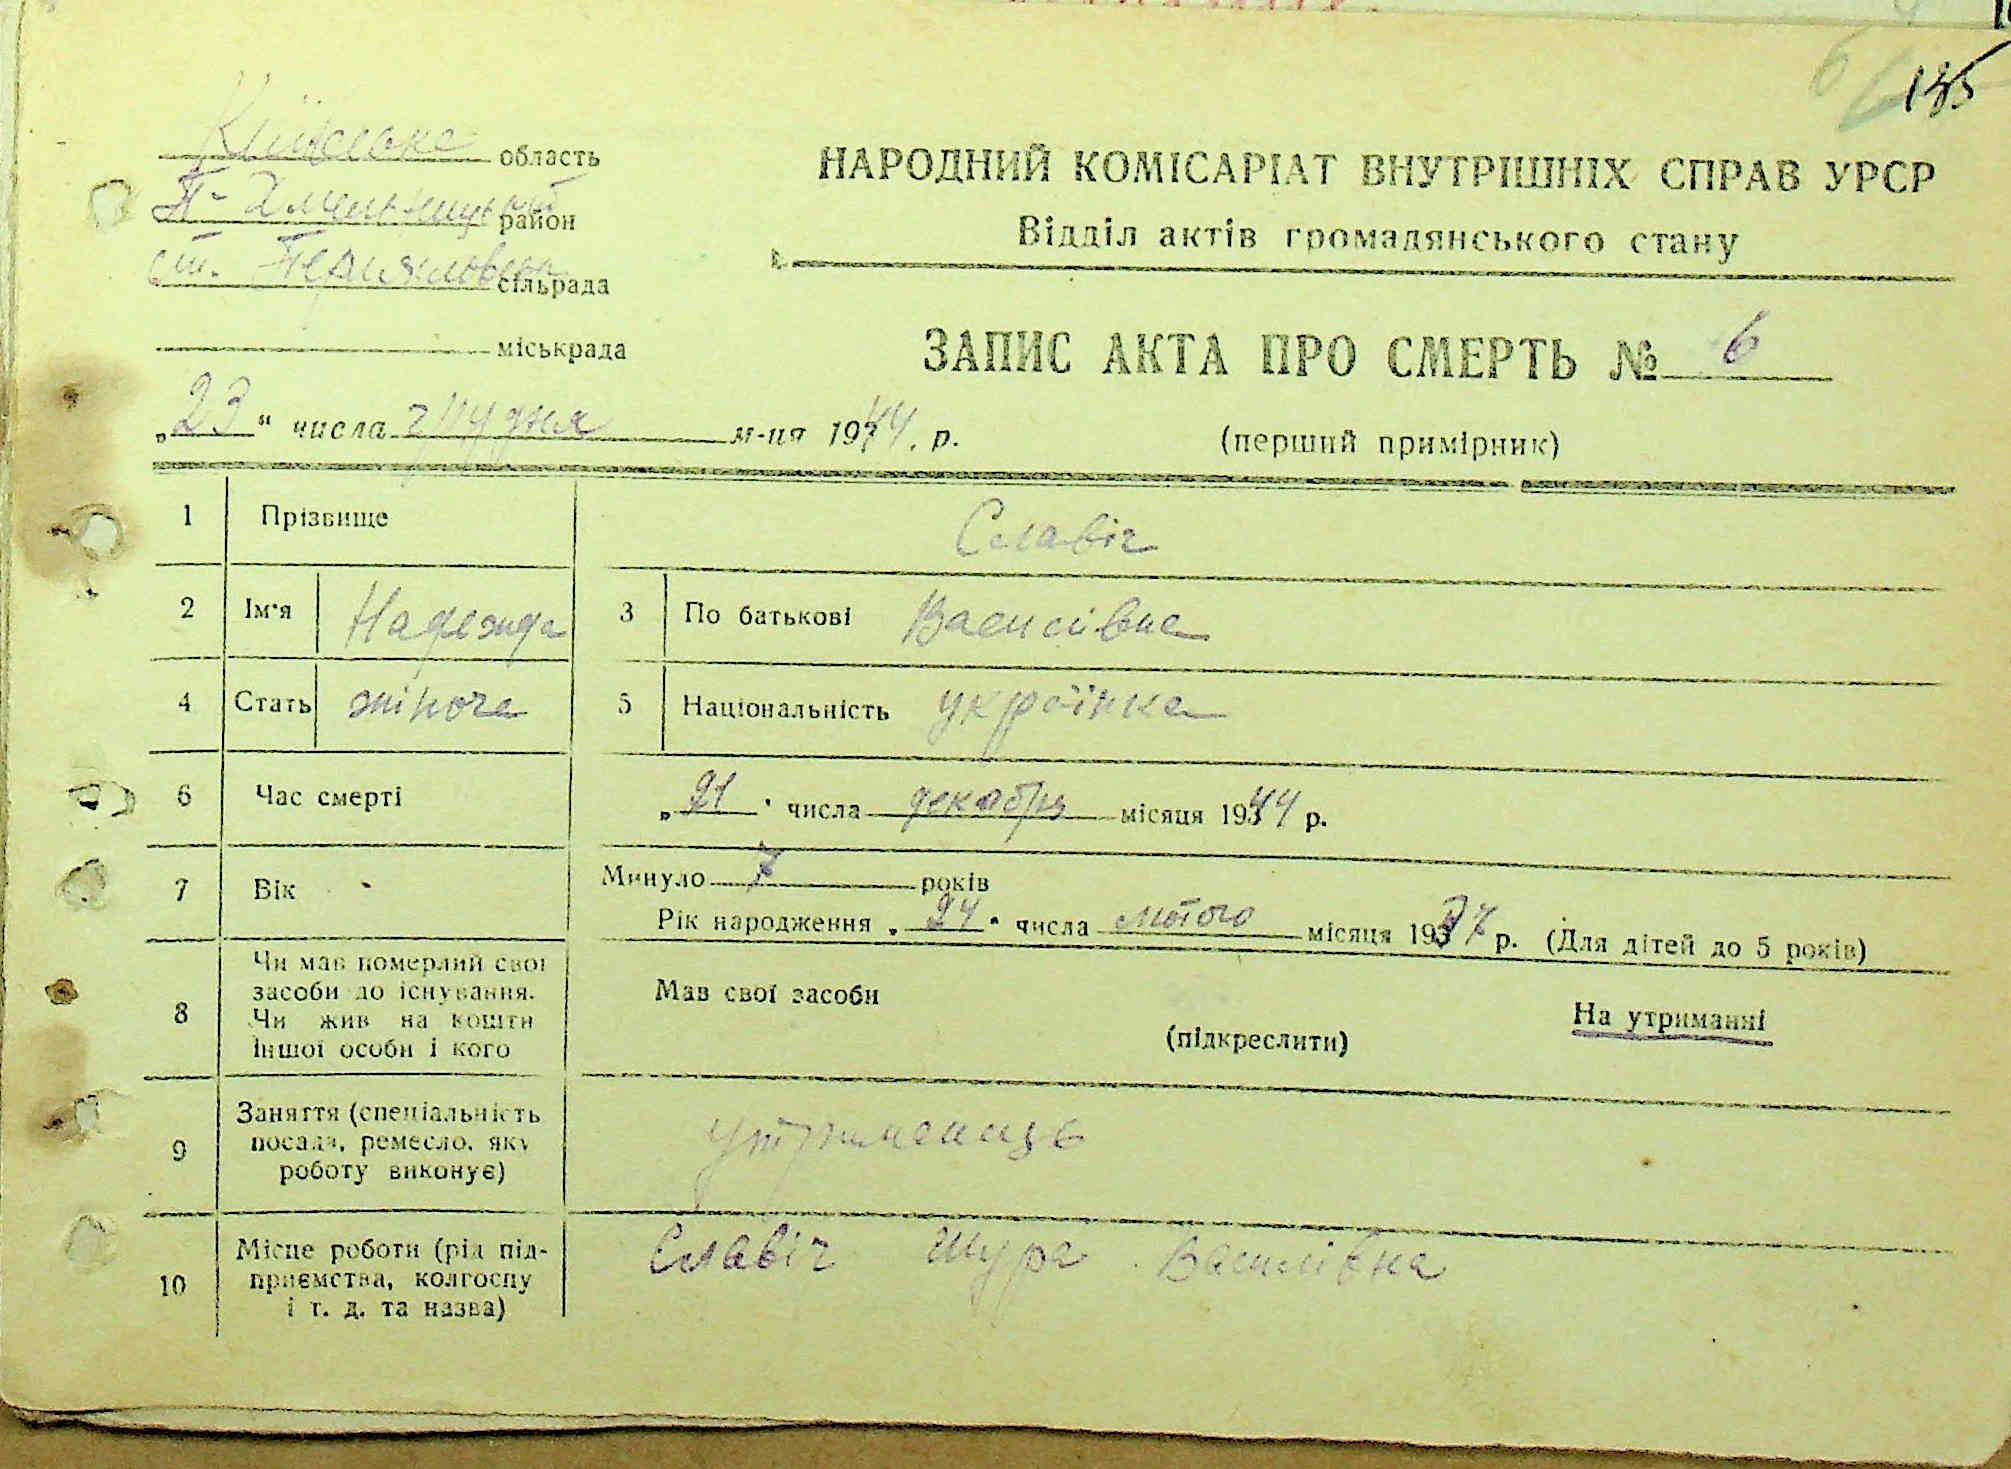 135
Київська область
П-Хмельницький район
ст. сільрада
міськрада
НАРОДНИЙ КОМІСАРІАТ ВНУТРІШНІХ СПРАВ УРСР
Відділ актів громадянського стану
ЗАПИС АКТА ПРО СМЕРТЬ № 6
„23“ числа грудня м-ця 1944. р.
(перший примірник)
1 Прізвище Славіч
2 Ім'я Надежда 3 По батькові Василівна
4 Стать жіноча 5 Національність українка
6 Час смерті „21“ числа декабря місяця 1944 р.
7 Вік Минуло 7 років
Рік народження „24“ числа лютого місяця 1937 р. (Для дітей до 5 років)
8 Чи мав померлий свої
засоби до існування.
Чи жив на кошти
іншої особи і кого
Мав свої засоби
(підкреслити)
На утриманні
9 Заняття (спеціальність
посада, ремесло, яку
роботу виконує)
утриманець
10 Місце роботи (рід під-
приємства, колгоспу
і т. д. та назва)
Славіч Шура Василівна